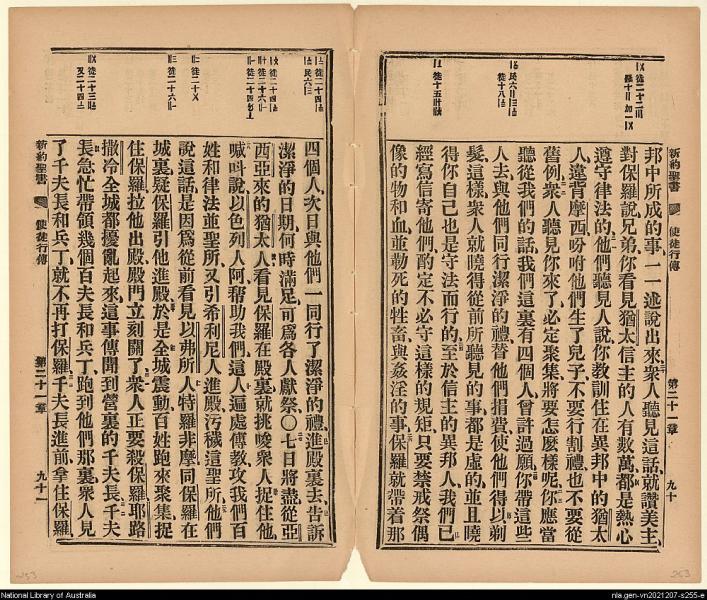 新約聖書 使徒行傳 第二十一章 九十
邦中所成的事一一述說出來衆人聽見這話就讚美主
對保羅說兄弟你看見猶太信主的人有數萬都是熱心
遵守律法的他們聽見人說你教訓住在異邦中的猶太
人違背摩西吩咐他們生了兒子不要行割禮也不要從
舊例衆人聽見你來了必定聚集將要怎麼樣呢你應當
聽從我們的話我們這裏有四個人曾許過願你帶這些
人去與他們同行潔淨的禮替他們捐費使他們得以剃
髮這樣衆人就曉得從前所聽見的事都是虛的並且曉
得你自己也是守法而行的至於信主的異邦人我們已
經寫信寄他們酌定不必守這樣的規矩只要禁戒祭偶
像的物和血並勒死的牲畜與姦淫的事保羅就帶着那
四個人次日與他們一同行了潔淨的禮進殿裏去告訴
潔淨的日期何時滿足可爲各人獻祭〇七日將盡從亞
西亞來的猶太人看見保羅在殿裏就挑唆衆人捉住他
喊呌說以色列人阿帮助我們這人遍處傳教攻我們百
姓和律法並聖所又引希利尼人進殿污穢這聖所他們
說這話是因爲從前看見以弗所人特羅非摩同保羅在
城裏疑保羅引他進殿於是全城震動百姓跑來聚集捉
住保羅拉他出殿殿門立刻關了衆人正要殺保羅耶路
撒冷全城都擾亂起來這事傳聞到營裏的千夫長千夫
長急忙帶領幾個百夫長和兵丁跑到他們那裏衆人見
了千夫長和兵丁就不再打保羅千夫長進前拿住保羅
新約聖書 使徒行傳 第二十一章 九十一
253
253
National Library of Australia
nla.gen-vn2021207-s255-e